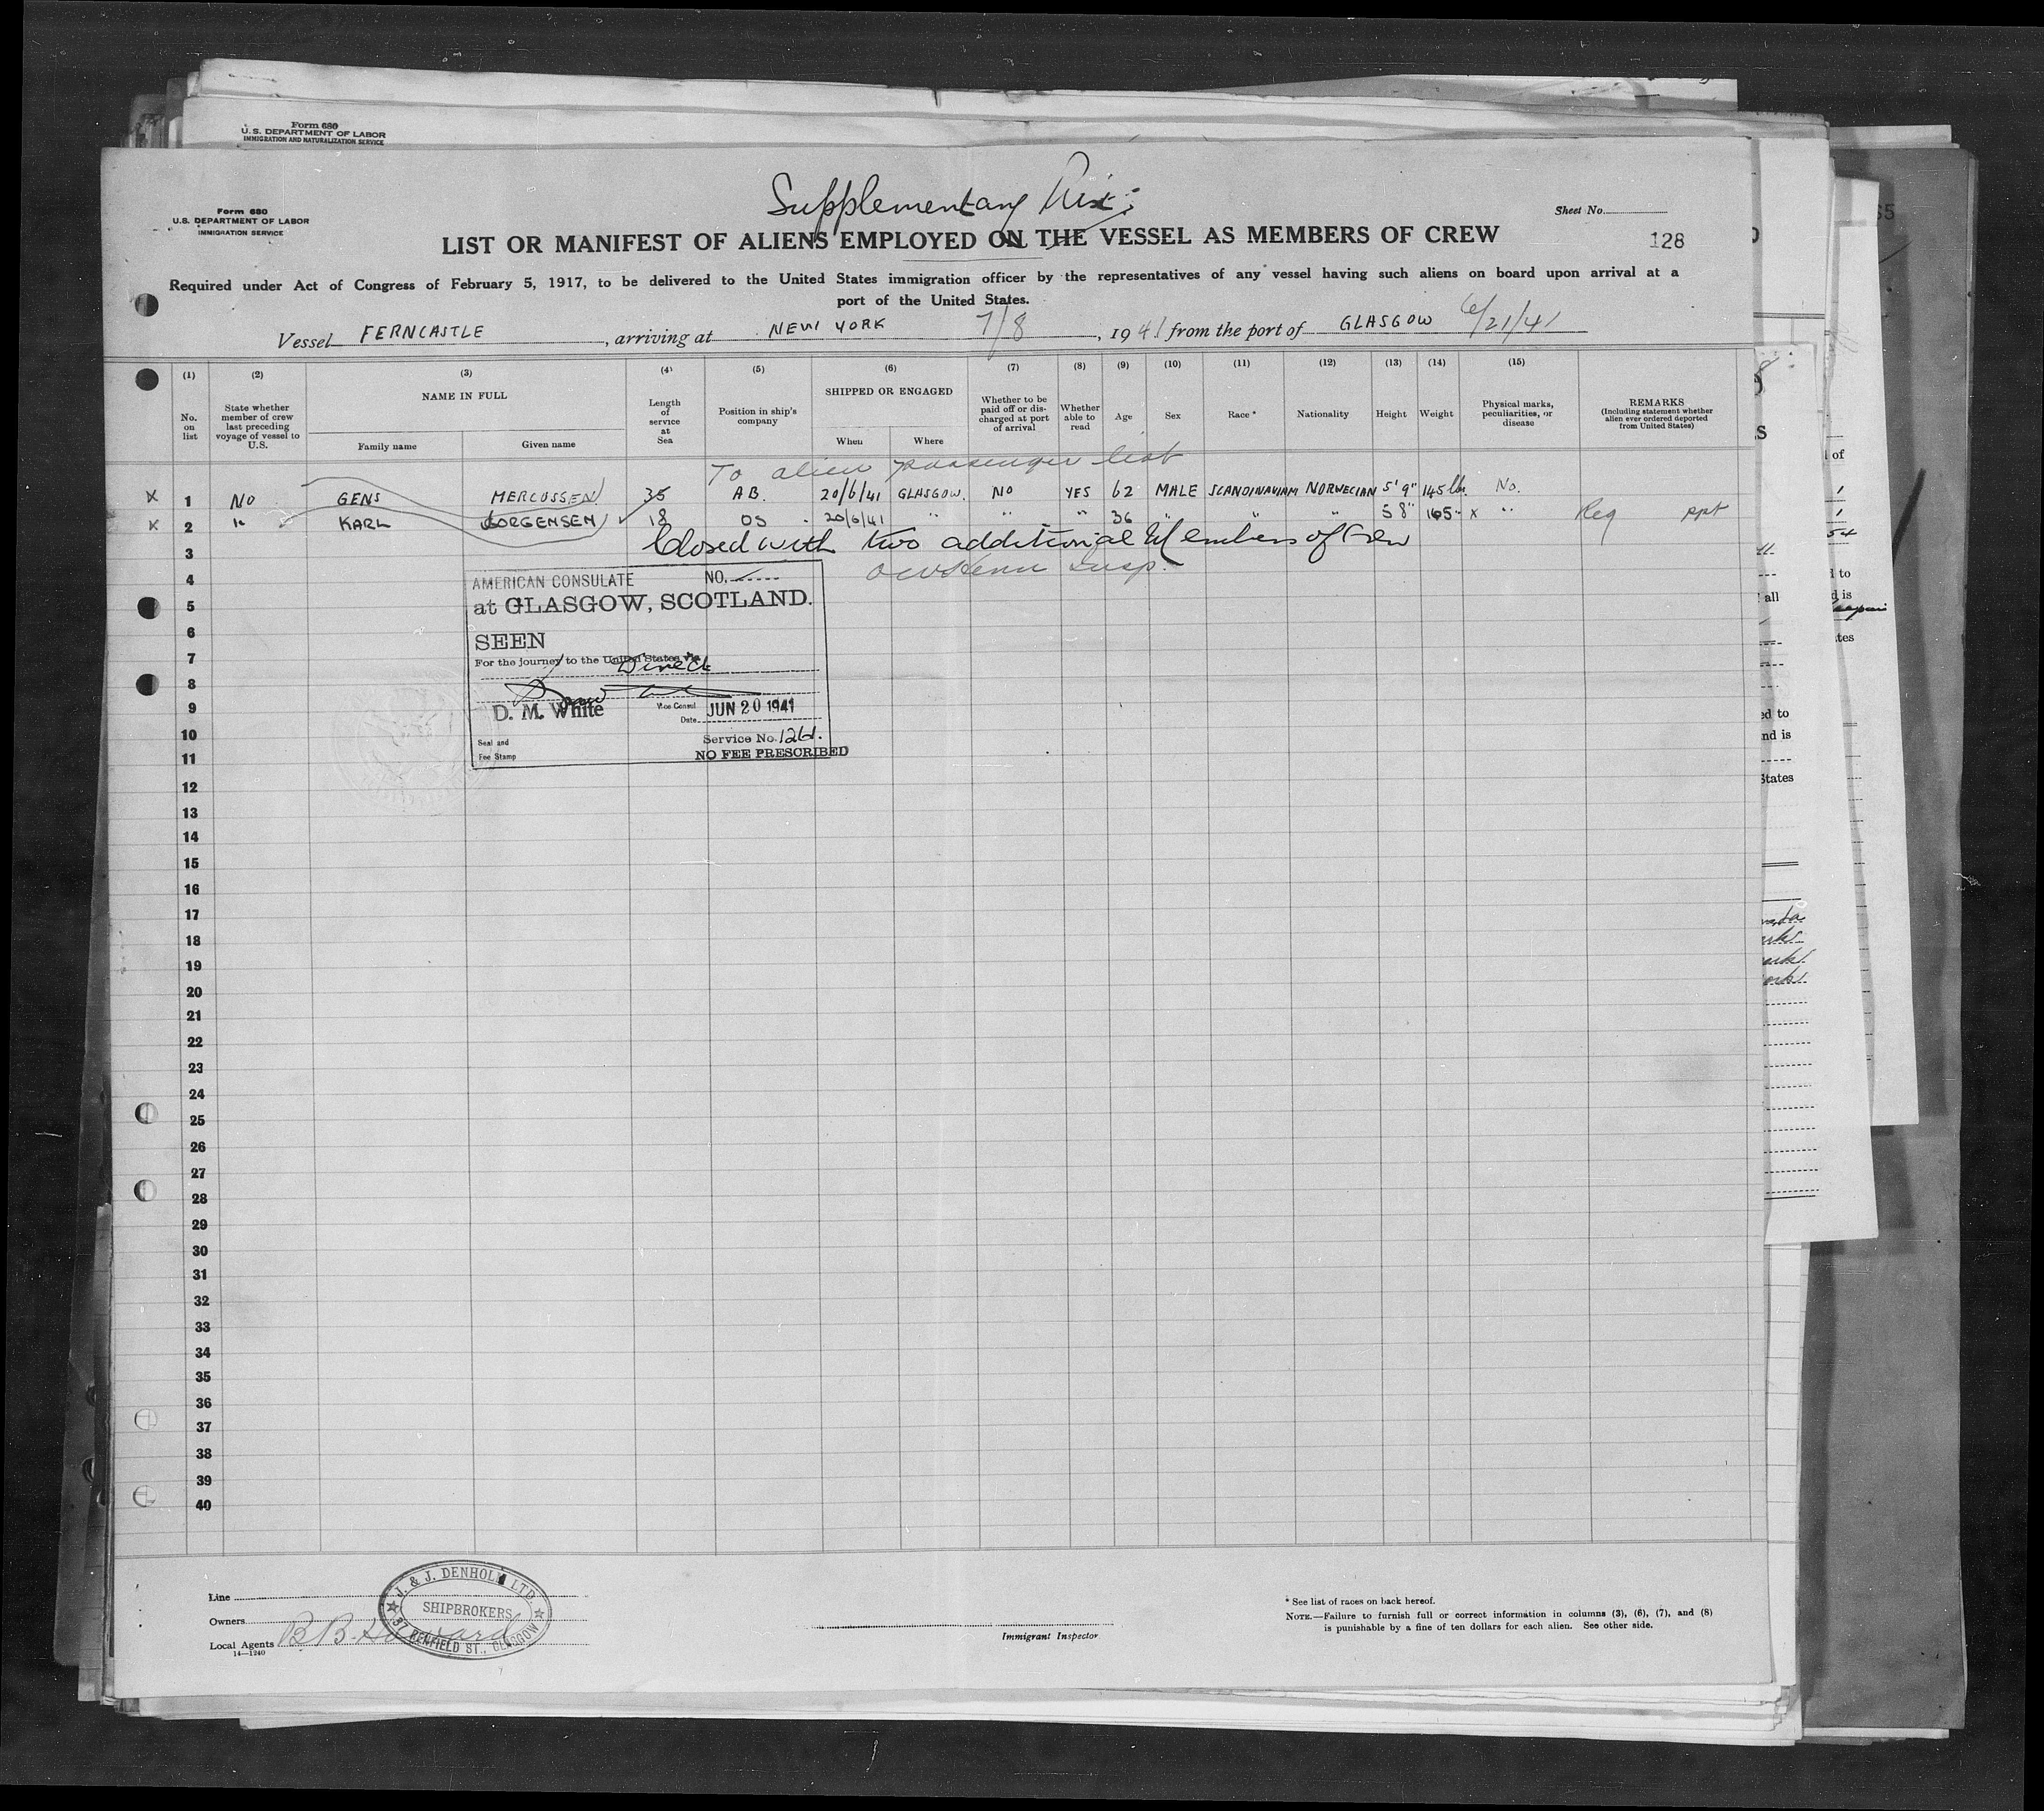 Form 680
U. S. DEPARTMENT OF LABOR
IMMIGRATION AND NATURALIZATION SERVICE
Supplementary List
Form 680
U. S. DEPARTMENT OF LABOR
IMMIGRATION SERVICE
Sheet No.
LIST OR MANIFEST OF ALIENS EMPLOYED ON THE VESSEL AS MEMBERS OF CREW
128
Required under Act of Congress of February 5, 1917, to be delivered to the United States immigration officer by the representatives of any vessel having such aliens on board upon arrival at a
port of the United States.
Vessel FERNCASTLE, arriving at NEW YORK 7/8, 1941 from the port of GLASGOW 6/21/41
(1) (2) (3) (4) (5) (6) (7) (8) (9) (10) (11) (12) (13) (14) (15)
No. on list
State whether member of crew last preceding voyage of vessel to U.S.
NAME IN FULL
Family name
Given name
Length of service at Sea
Position in ship's company
SHIPPED OR ENGAGED
When
Where
Whether to be paid off or discharged at port of arrival
Whether able to read
Age
Sex
Race *
Nationality
Height
Weight
Physical marks, peculiarities, or disease
REMARKS
(Including statement whether alien ever ordered deported from United States)
To alien passenger list
x 1 NO GENS MERCUSSEN 35 AB. 20/6/41 GLASGOW. NO YES 62 MALE SCANDINAVIAN NORWEGIAN 5' 9" 145 lbs. No.
x 2 " KARL JORGENSEN ✓ 18 OS 20/6/41 " " " 36 " " " 5 8" 165 " x " Reg ppt
3 Closed with two additional Members of Crew
4
5
6
7
8
9
10
11
12
13
14
15
16
17
18
19
20
21
22
23
24
25
26
27
28
29
30
31
32
33
34
35
36
37
38
39
40
AMERICAN CONSULATE NO.
at GLASGOW, SCOTLAND.
SEEN
For the journey to the United States via
Direct
D. M. White
Vice Consul
Date JUN 20 1941
Seal and
Fee Stamp
Service No. 1261.
NO FEE PRESCRIBED
Line
Owners
Local Agents
14—1240
J. & J. DENHOLM LTD.
SHIPBROKERS
87 RENFIELD ST., GLASGOW
Immigrant Inspector
* See list of races on back hereof.
NOTE.—Failure to furnish full or correct information in columns (3), (6), (7), and (8)
is punishable by a fine of ten dollars for each alien. See other side.